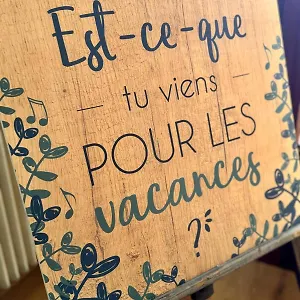 Est-ce-que
tu viens
POUR LES
vacances
?